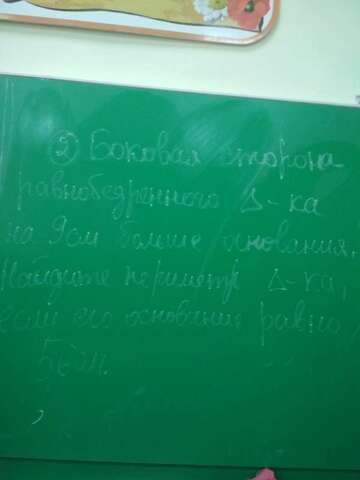 ② Боковая сторона
равнобедренного Δ-ка
на 9см больше основания.
Найдите периметр Δ-ка,
если его основание равно